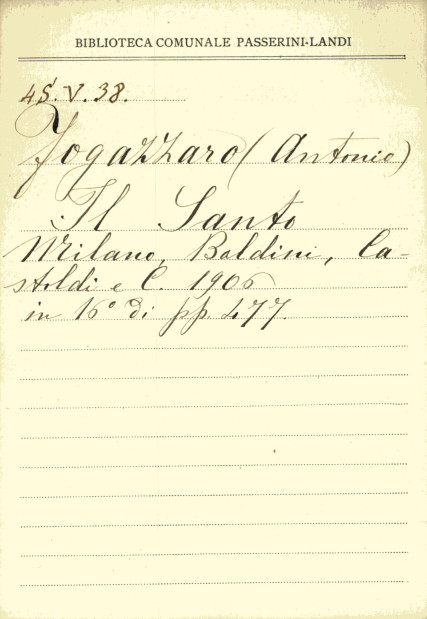 BIBLIOTECA COMUNALE PASSERINI-LANDI
45.V.38.
Fogazzaro (Antonio)
Il Santo
Milano, Baldini, Ca-
stoldi e C. 1906
in 16° di pp. 477.